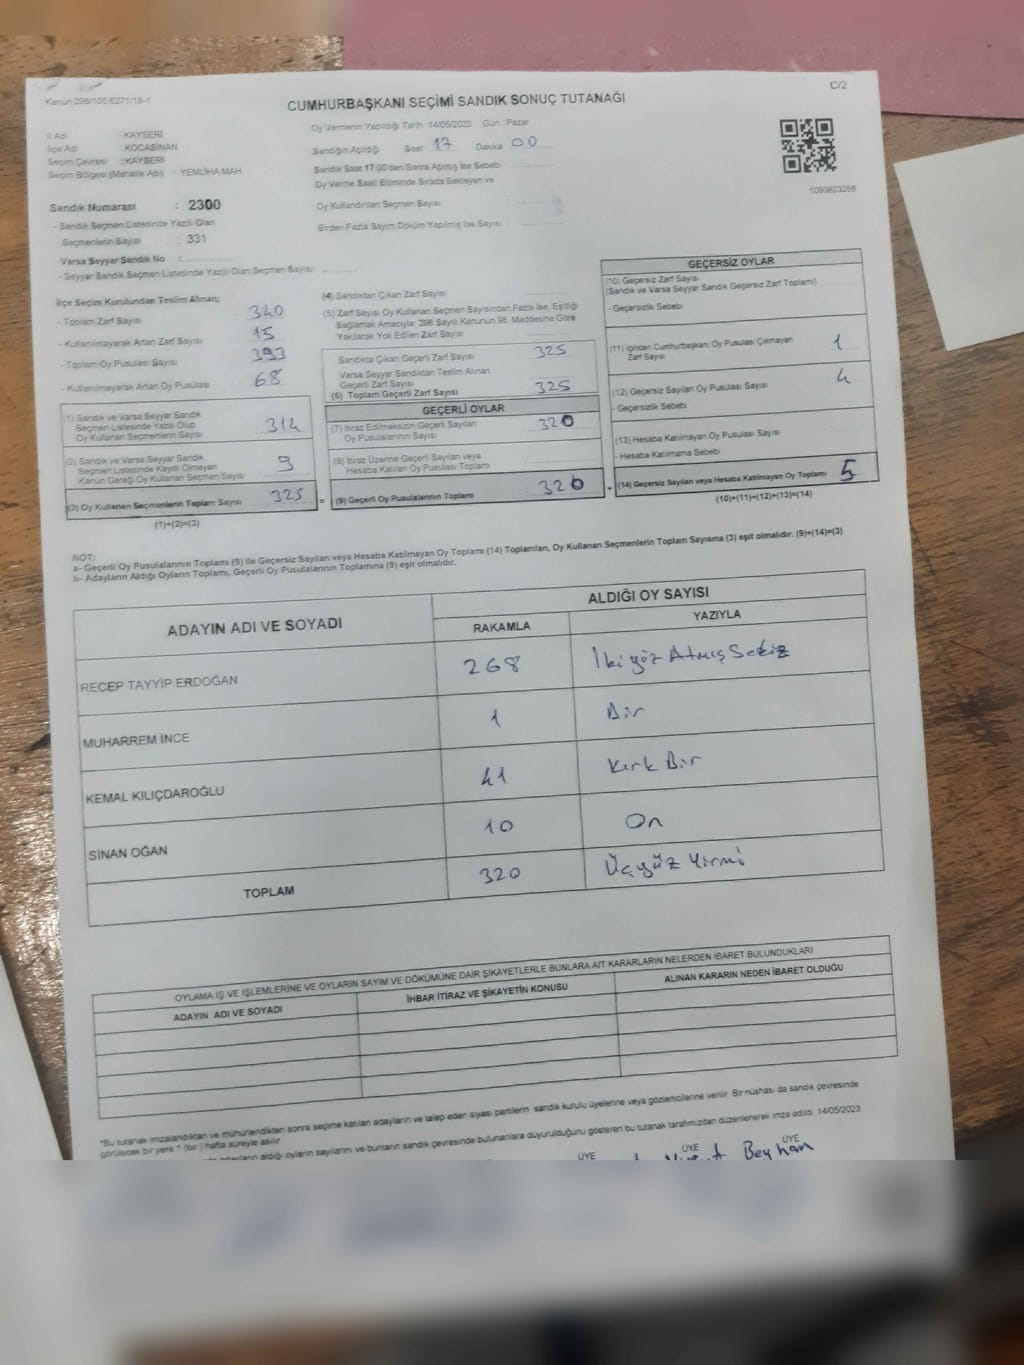 Kanun:298/105;6271/18-1
C/2
CUMHURBAŞKANI SEÇİMİ SANDIK SONUÇ TUTANAĞI
İl Adı : KAYSERİ
İlçe Adı : KOCASİNAN
Seçim Çevresi : KAYSERİ
Seçim Bölgesi (Mahalle Adı) : YEMLİHA MAH
Sandık Numarası : 2300
- Sandık Seçmen Listesinde Yazılı Olan
Seçmenlerin Sayısı : 331
Varsa Seyyar Sandık No :
- Seyyar Sandık Seçmen Listesinde Yazılı Olan Seçmen Sayısı:
Oy Vermenin Yapıldığı Tarih :14/05/2023 Gün : Pazar
Sandığın Açıldığı Saat 17 Dakika 00
Sandık Saat 17:00'den Sonra Açılmış İse Sebebi
Oy Verme Saati Bitiminde Sırada Bekleyen ve
Oy Kullandırılan Seçmen Sayısı
Birden Fazla Sayım Döküm Yapılmış İse Sayısı
1093823258
İlçe Seçim Kurulundan Teslim Alınan;
- Toplam Zarf Sayısı 340
- Kullanılmayarak Artan Zarf Sayısı 15
- Toplam Oy Pusulası Sayısı 393
- Kullanılmayarak Artan Oy Pusulası 68
(1) Sandık ve Varsa Seyyar Sandık
Seçmen Listesinde Yazılı Olup
Oy Kullanan Seçmenlerin Sayısı 314
(2) Sandık ve Varsa Seyyar Sandık
Seçmen Listesinde Kayıtlı Olmayan
Kanun Gereği Oy Kullanan Seçmen Sayısı 9
(3) Oy Kullanan Seçmenlerin Toplam Sayısı 325
(1)+(2)=(3)
(4) Sandıktan Çıkan Zarf Sayısı
(5) Zarf Sayısı Oy Kullanan Seçmen Sayısından Fazla İse, Eşitliği
Sağlamak Amacıyla; 298 Sayılı Kanunun 98. Maddesine Göre
Yakılarak Yok Edilen Zarf Sayısı
Sandıkta Çıkan Geçerli Zarf Sayısı 325
Varsa Seyyar Sandıktan Teslim Alınan
Geçerli Zarf Sayısı
(6) Toplam Geçerli Zarf Sayısı 325
GEÇERLİ OYLAR
(7) İtiraz Edilmeksizin Geçerli Sayılan
Oy Pusulalarının Sayısı 320
(8) İtiraz Üzerine Geçerli Sayılan veya
Hesaba Katılan Oy Pusulası Toplamı
= (9) Geçerli Oy Pusulalarının Toplamı 320
GEÇERSİZ OYLAR
(10) Geçersiz Zarf Sayısı
(Sandık ve Varsa Seyyar Sandık Geçersiz Zarf Toplamı)
- Geçersizlik Sebebi
(11) İçinden Cumhurbaşkanı Oy Pusulası Çıkmayan
Zarf Sayısı 1
(12) Geçersiz Sayılan Oy Pusulası Sayısı 4
- Geçersizlik Sebebi
(13) Hesaba Katılmayan Oy Pusulası Sayısı
- Hesaba Katılmama Sebebi
+ (14) Geçersiz Sayılan veya Hesaba Katılmayan Oy Toplamı 5
(10)+(11)+(12)+(13)=(14)
NOT:
a- Geçerli Oy Pusulalarının Toplamı (9) ile Geçersiz Sayılan veya Hesaba Katılmayan Oy Toplamı (14) Toplamları, Oy Kullanan Seçmenlerin Toplam Sayısına (3) eşit olmalıdır. (9)+(14)=(3)
b- Adayların Aldığı Oyların Toplamı, Geçerli Oy Pusulalarının Toplamına (9) eşit olmalıdır.
ADAYIN ADI VE SOYADI
ALDIĞI OY SAYISI
RAKAMLA YAZIYLA
RECEP TAYYİP ERDOĞAN 268 İkiyüz Atmış Sekiz
MUHARREM İNCE 1 Bir
KEMAL KILIÇDAROĞLU 41 Kırk Bir
SİNAN OĞAN 10 On
TOPLAM 320 Üçyüz Yirmi
OYLAMA İŞ VE İŞLEMLERİNE VE OYLARIN SAYIM VE DÖKÜMÜNE DAİR ŞİKAYETLERLE BUNLARA AİT KARARLARIN NELERDEN İBARET BULUNDUKLARI
ADAYIN ADI VE SOYADI İHBAR İTİRAZ VE ŞİKAYETİN KONUSU ALINAN KARARIN NEDEN İBARET OLDUĞU
*Bu tutanak imzalandıktan ve mühürlendikten sonra seçime katılan adayların ve talep eden siyasi partilerin sandık kurulu üyelerine veya gözlemcilerine verilir. Bir nüshası da sandık çevresinde
görülecek bir yere 1 (bir) hafta süreyle asılır
adayların aldığı oyların sayılarını ve bunların sandık çevresinde bulunanlara duyurulduğunu gösteren bu tutanak tarafımızdan düzenlenerek imza edildi. 14/05/2023
ÜYE ÜYE ÜYE
Beyhan